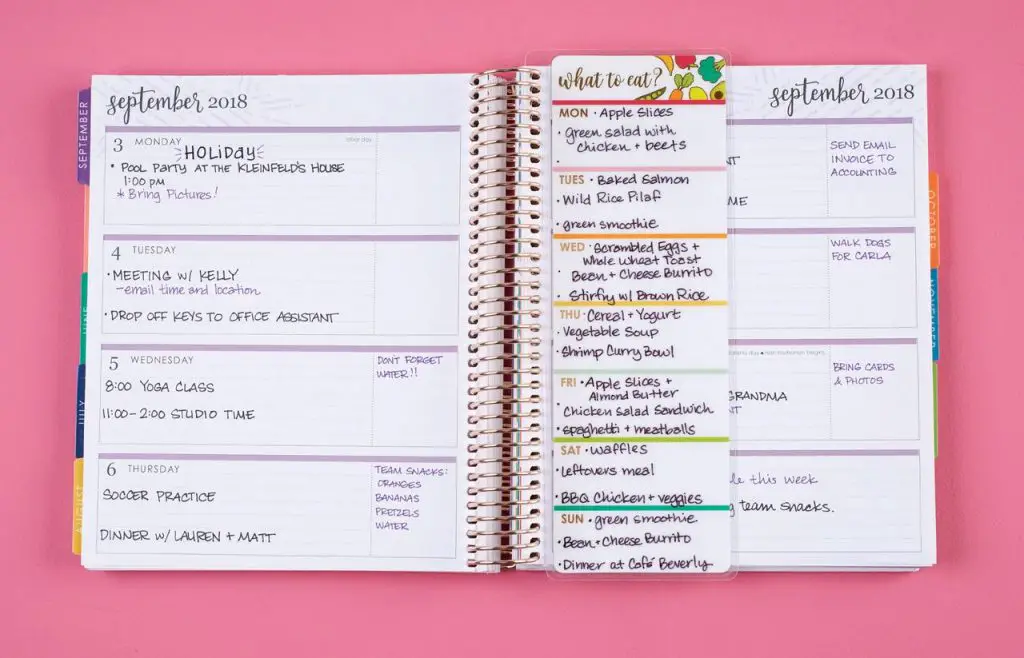 september 2018
3 MONDAY
labor day
HOLiDay
• POOL PARTY AT THE KLEINFELD'S HOUSE
1:00 pm
* Bring Pictures!
4 TUESDAY
• MEETING W/ KELLY
- email time and location
• DROP OFF KEYS TO OFFICE ASSISTANT
5 WEDNESDAY
DONT FORGET
WATER!!
8:00 YOGA CLASS
11:00-2:00 STUDIO TIME
6 THURSDAY
TEAM SNACKS:
ORANGES
BANANAS
PRETZELS
WATER
SOCCER PRACTICE
DINNER W/ LAUREN + MATT
SEPTEMBER
JUNE
JULY
AUGUST
what to eat?
MON • Apple Slices
• green salad with
chicken + beets
•
TUES • Baked Salmon
• Wild Rice Pilaf
• green smoothie
WED • Scrambled Eggs +
Whole Wheat Toast
• Bean + Cheese Burrito
• Stirfry w/ Brown Rice
THU • Cereal + Yogurt
• Vegetable Soup
• Shrimp Curry Bowl
FRI • Apple Slices +
Almond Butter
• Chicken Salad Sandwich
• spaghetti + meatballs
SAT • waffles
• leftovers meal
• BBQ Chicken + veggies
SUN • green smoothie
• Bean + Cheese Burrito
• Dinner at Café Beverly
september 2018
SEND EMAIL
INVOICE TO
ACCOUNTING
NT
ME
WALK DOGS
FOR CARLA
BRING CARDS
& PHOTOS
GRANDMA
NT
this week
team snacks.
OCTOBER
NOVEMBER